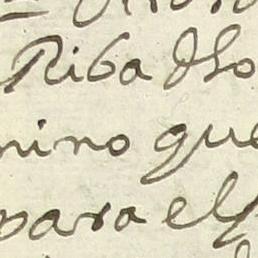 Riba dho
nino que
para el